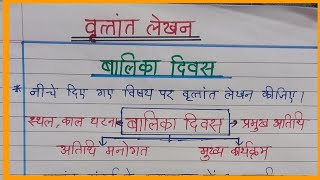 वृत्तांत लेखन
बालिका दिवस
* नीचे दिए गए विषय पर वृत्तांत लेखन कीजिए।
स्थल, काल घटना बालिका दिवस प्रमुख अतिथि
अतिथि मनोगत मुख्य कार्यक्रम